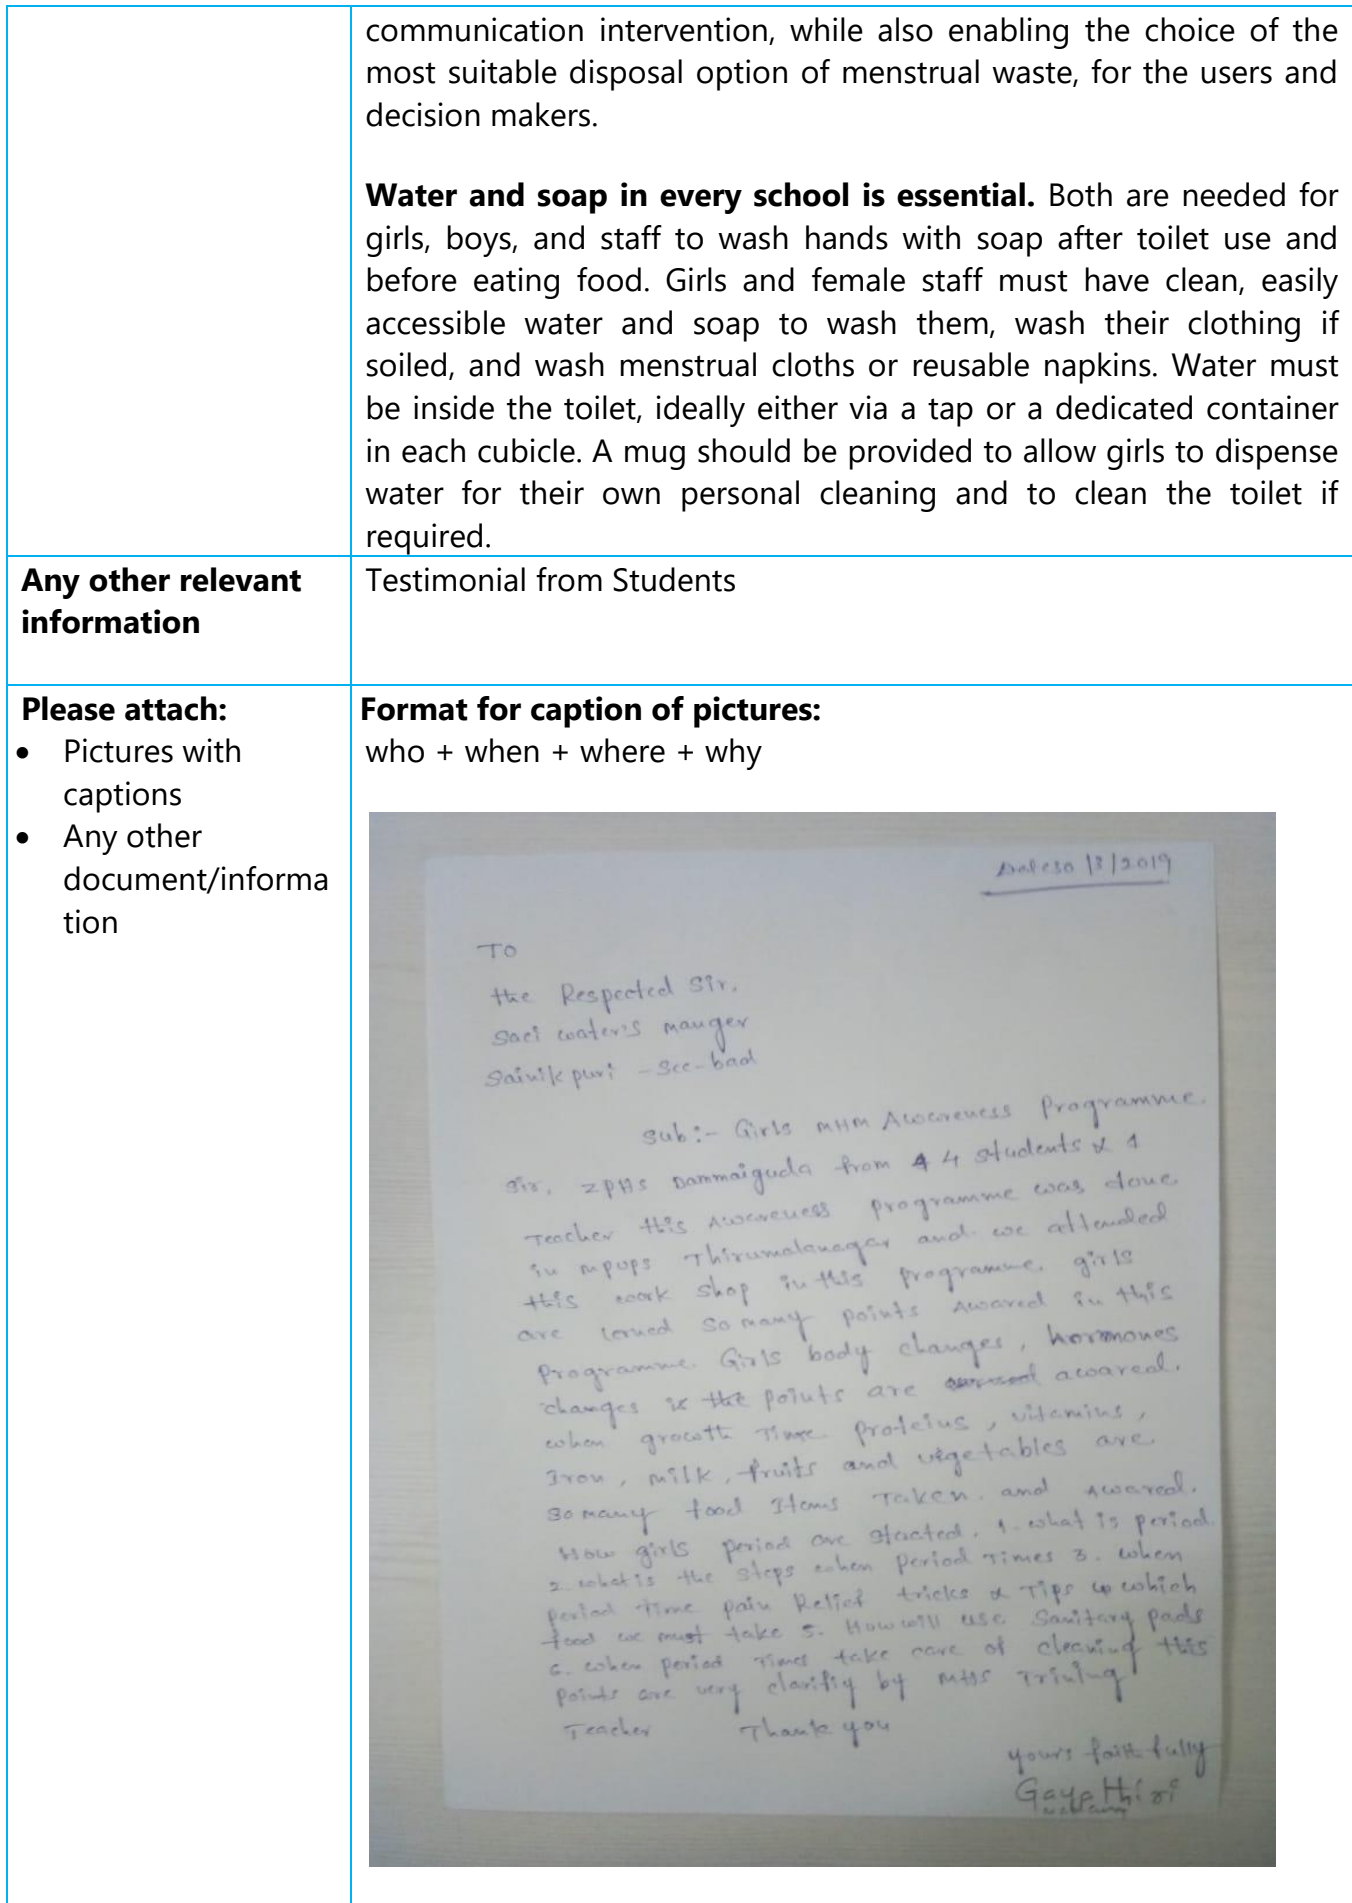 communication intervention, while also enabling the choice of the
most suitable disposal option of menstrual waste, for the users and
decision makers.
Water and soap in every school is essential. Both are needed for
girls, boys, and staff to wash hands with soap after toilet use and
before eating food. Girls and female staff must have clean, easily
accessible water and soap to wash them, wash their clothing if
soiled, and wash menstrual cloths or reusable napkins. Water must
be inside the toilet, ideally either via a tap or a dedicated container
in each cubicle. A mug should be provided to allow girls to dispense
water for their own personal cleaning and to clean the toilet if
required.
Any other relevant
information
Testimonial from Students
Please attach:
• Pictures with
captions
• Any other
document/informa
tion
Format for caption of pictures:
who + when + where + why
/3/2019
To
the Respected Sir,
Saci water's mauger
Sainikpuri - Sec-bad
Sub:- Girls MHM Awareness Programme.
Sir, ZPHS Dammaiguda from 4 students & 1
Teacher this Awareness programme was done
in mpups Thirumalanagar and we attended
this work shop in this programme. girls
are lerned so many points Awared in this
programme. Girls body changes, hormones
changes is the points are awared.
when growth Time proteins, vitamins,
Iron, milk, fruits and vegetables are
so many food Items Taken. and Awared.
How girls period are started. 1. what is period
2. what is the steps when period Times 3. when
period time pain Relief tricks & Tips 4 which
food we must take 5. How will use Sanitary pads
6. when period Times take care of cleaning this
points are very clarifiy by Trining
Teacher Thank you
yours faithfully
Gayathiri